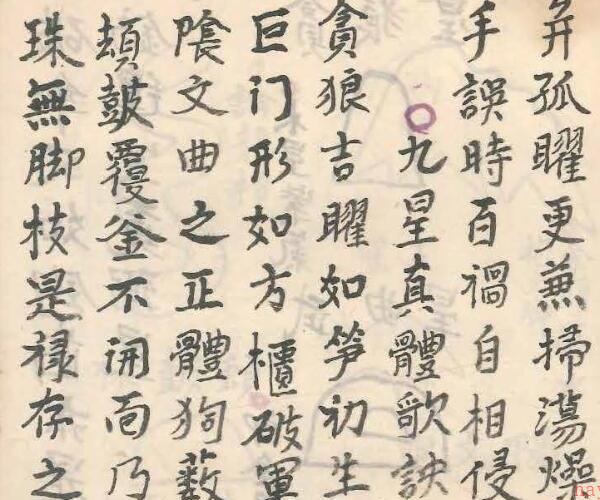 并孤曜更兼掃蕩燥
手誤時百禍自相侵
九星真體歌訣
貪狼吉曜如笋初生
巨门形如方櫃破軍
陰文曲之正體狗薮
頓皷覆釜不開面乃
珠無脚枝是禄存之